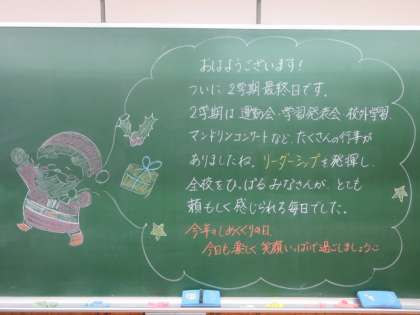 おはようございます!
ついに2学期最終日です。
2学期は運動会・学習発表会・校外学習、
マンドリンコンサートなど、たくさんの行事が
ありましたね。リーダーシップを発揮し、
全校をひっぱるみなさんが、とても
頼もしく感じられる毎日でした。
今年のしめくくりの日
今日も楽しく笑顔いっぱいで過ごしましょう